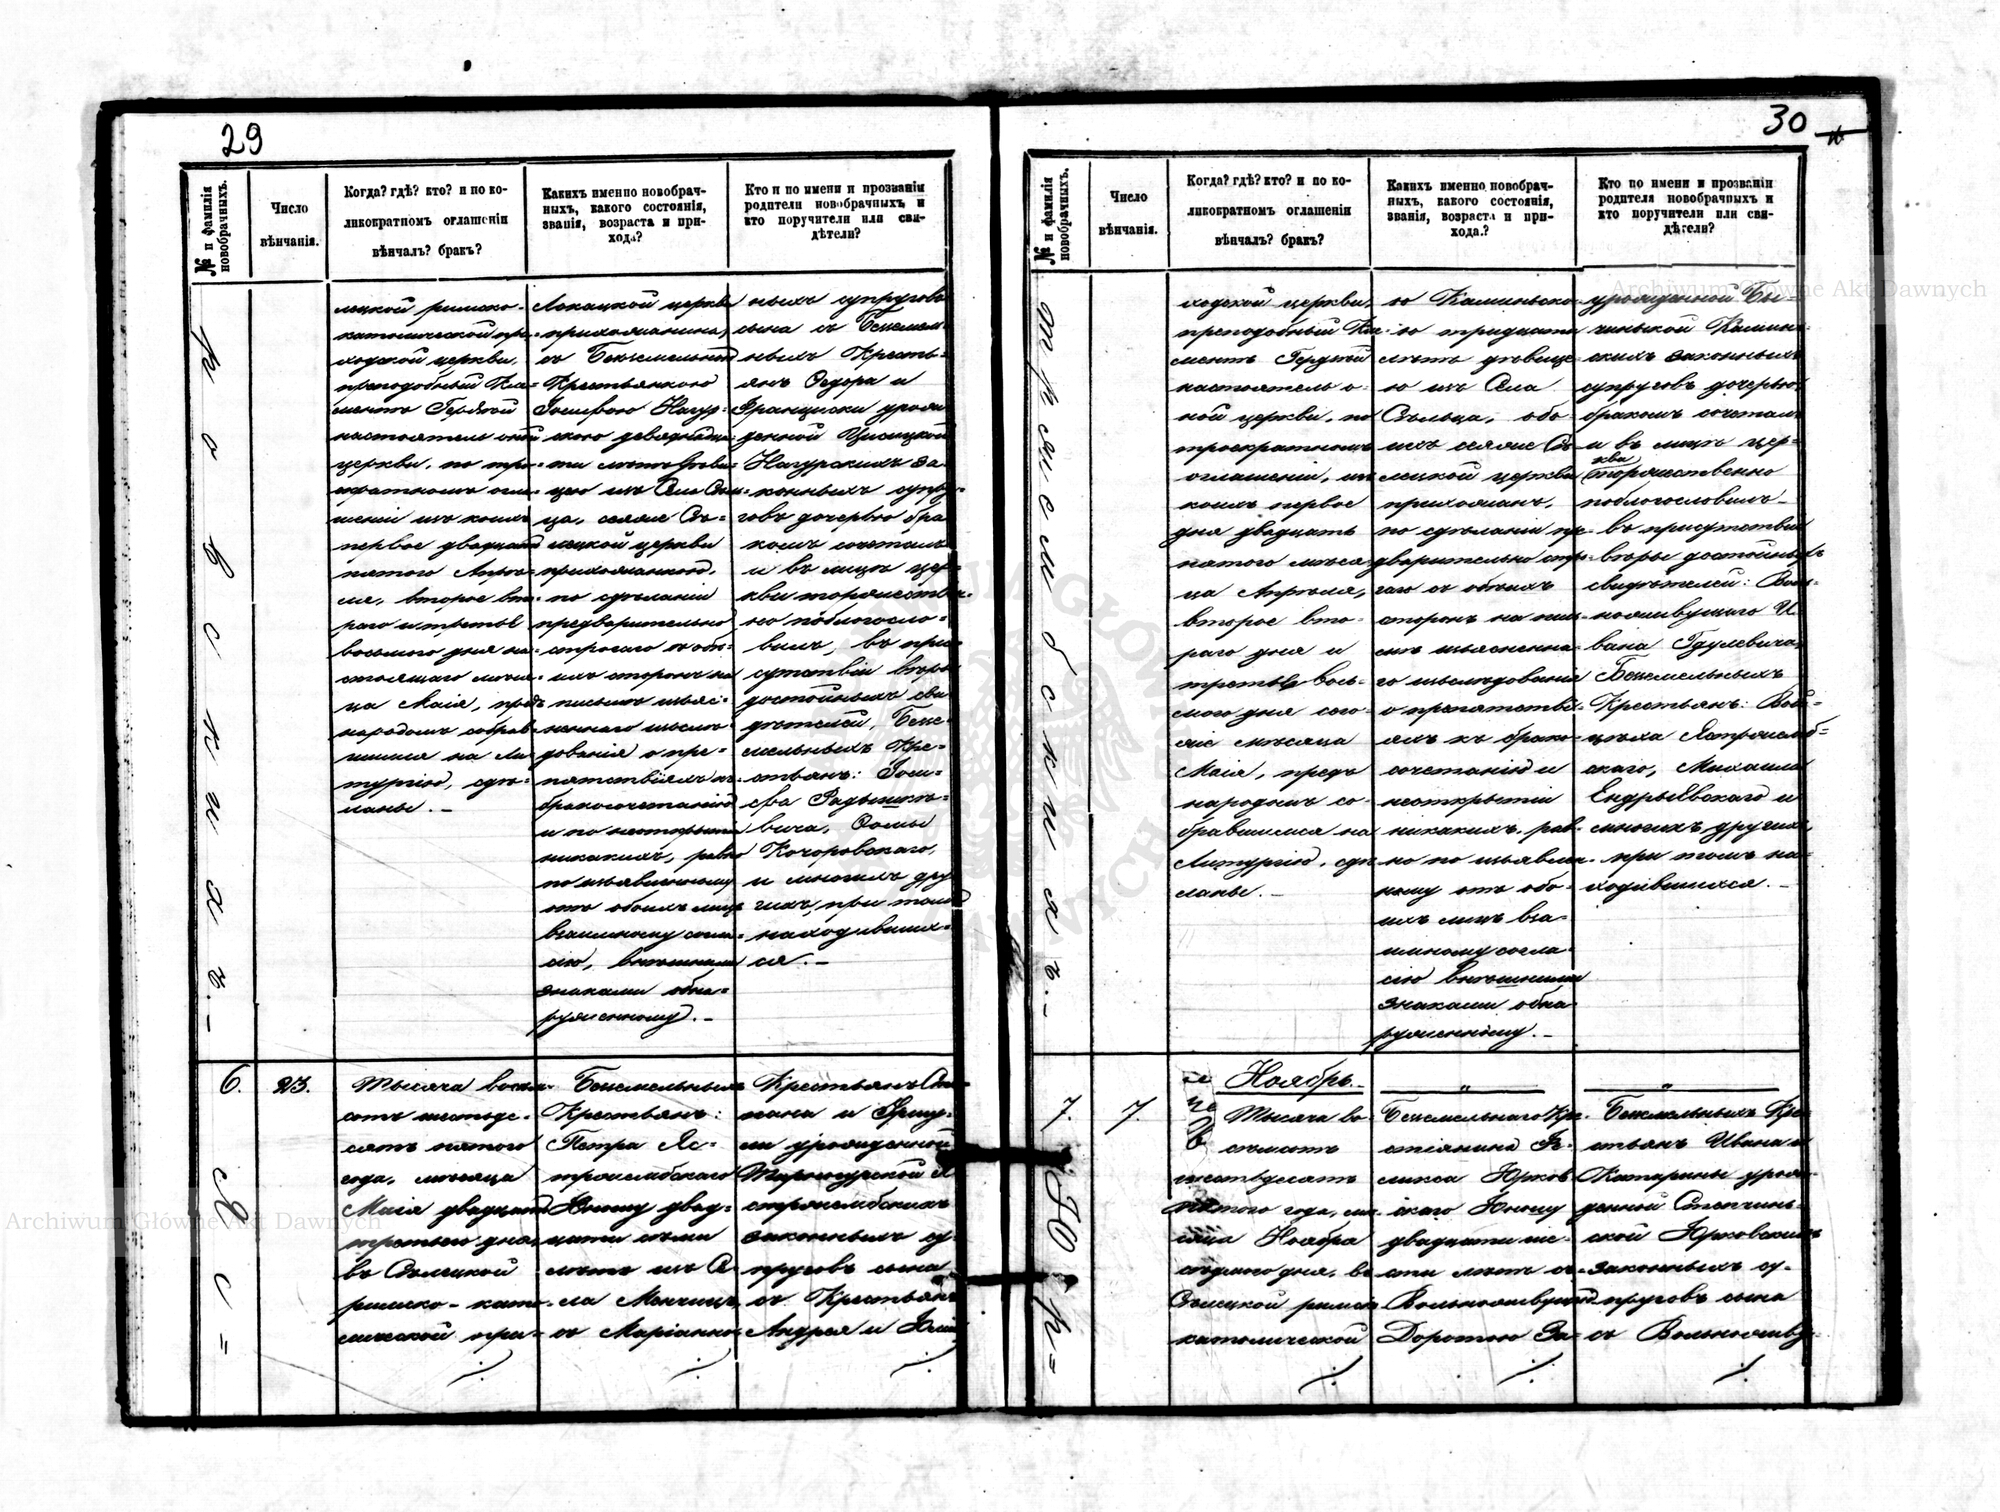 29
№ и фамилія новобрачныхъ.
Число
вѣнчанія.
Когда? гдѣ? кто? и по ко-
ликократномъ оглашеніи
вѣнчалъ? бракъ?
Какихъ именно новобрач-
ныхъ, какого состоянія,
званія, возраста и при-
хода?
Кто и по имени и прозванію
родители новобрачныхъ и
кто поручители или сви-
дѣтели?
лецкой римско-
католической при-
ходской церкви,
преподобный Кли-
ментъ
настоятель оной
церкви, по трое-
кратномъ огла-
шеніи изъ коихъ
первое двадцать
пятого Апрѣ-
ля, второе вто-
раго и третье
восьмого дня на-
стоящаго мѣся-
ца Маія, предъ
народомъ собрав-
шимся на Ли-
тургію, сдѣ-
ланы.-
Локацкой церкви
прихожанина,
съ Безземельной
Крестьянкою
Іосифою Нагур-
скою девятнадца-
ти лѣтъ дѣви-
цею изъ Села Сѣль-
ца, сеяже Сѣ-
лецкой церкви
прихожанкою,
по сдѣланіи
предварительно
строгаго съ обѣ-
ихъ сторонъ на
письмѣ изъяс-
неннаго изслѣ-
дованія о пре-
пятствіяхъ къ
бракосочетанію
и по неоткрытіи
никакихъ, равно
по изъявленному
отъ обоихъ лицъ
взаимному согла-
сію, внѣшними
знаками обна-
руженному.-
ныхъ супруговъ
сына съ Безземель-
ныхъ Кресть-
янъ Ѳедора и
Франциски урож-
денной
Нагурскихъ за-
конныхъ супру-
говъ дочерью бра-
комъ сочеталъ
и въ лицѣ цер-
кви торжествен-
но поблагосло-
вилъ, въ при-
сутствіи вѣро-
достойныхъ сви-
дѣтелей, Безе-
мельныхъ Кре-
стьянъ: Іоси-
ефа
вича, Ѳомы
Качоровскаго,
и многихъ дру-
гихъ, при томъ
находивших-
ся.-
6.
23.
Тысяча восем-
сотъ шестьде-
сятъ пятого
года, мѣсяца
Маія двадцать
третьего дня,
въ Сѣлецкой
римско-като-
лической при-
Безземельныхъ
Крестьянъ:
Петра Яс-
тржембскаго
Юношу двад-
цати семи
лѣтъ изъ Се-
ла
съ Маріанно-
Крестьянъ Сте-
пана и
урожденной
Яс-
стржембскихъ
законныхъ су-
пруговъ сына
съ Крестьянъ
Андрея и
30
№ и фамилія новобрачныхъ.
Число
вѣнчанія.
Когда? гдѣ? кто? и по ко-
ликократномъ оглашеніи
вѣнчалъ? бракъ?
Какихъ именно новобрач-
ныхъ, какого состоянія,
званія, возраста и при-
хода?
Кто по имени и прозванію
родители новобрачныхъ и
кто поручители или сви-
дѣтели?
ходской церкви,
преподобный Кли-
ментъ
настоятель о-
ной церкви, по
троекратномъ
оглашеніи, изъ
коихъ первое
дня двадцать
пятого мѣся-
ца Апрѣля,
второе вто-
раго дня и
третье вось-
мого дня сего-
же мѣсяца
Маія, предъ
народомъ со-
бравшимся на
Литургію, сдѣ-
ланы.-
ю Каминьско-
ю тридцати
лѣтъ дѣвице-
ю изъ Села
Сѣльца, обо-
ихъ сеяже Сѣ-
лецкой церкви
прихожанъ,
по сдѣланіи пре-
дварительно стро-
гаго съ обѣихъ
сторонъ на пись-
мѣ изъясненна-
го изслѣдованія
о препятстві-
яхъ къ брако-
сочетанію и
неоткрытіи
никакихъ, рав-
но по изъявлен-
ному отъ обо-
ихъ лицъ вза-
имному согла-
сію внѣшними
знаками обна-
руженному.-
урожденной
Камин-
скихъ законныхъ
супруговъ дочерью
бракомъ сочеталъ
и въ лицѣ цер-
кви торжественно
поблагословилъ-
въ присутствіи
вѣродостойныхъ
свидѣтелей: Воль-
ноживущаго И-
вана
Безземельныхъ
Крестьянъ: Вой-
цѣха Ястржемб-
скаго, Михаила
Ендрыевскаго и
многихъ другихъ,
при томъ на-
ходившихся.-
7.
7.
Ноябрь.
Тысяча во-
семьсотъ
шестьдесятъ
пятого года, мѣ-
сяца Ноября
седмаго дня, въ
Сѣлецкой римско-
католической
Безземельнаго Кре-
стіянина Фе-
ликса Юрков-
скаго Юношу
двадцати ше-
сти лѣтъ съ
Вольноживущей
Доротою За-
Безземельныхъ Кре-
стьянъ Ивана и
Катарины урож-
денной
ской Юрковскихъ
законныхъ су-
пруговъ сына
съ Вольноживу-
Archiwum Główne Akt Dawnych
Archiwum Główne Akt Dawnych